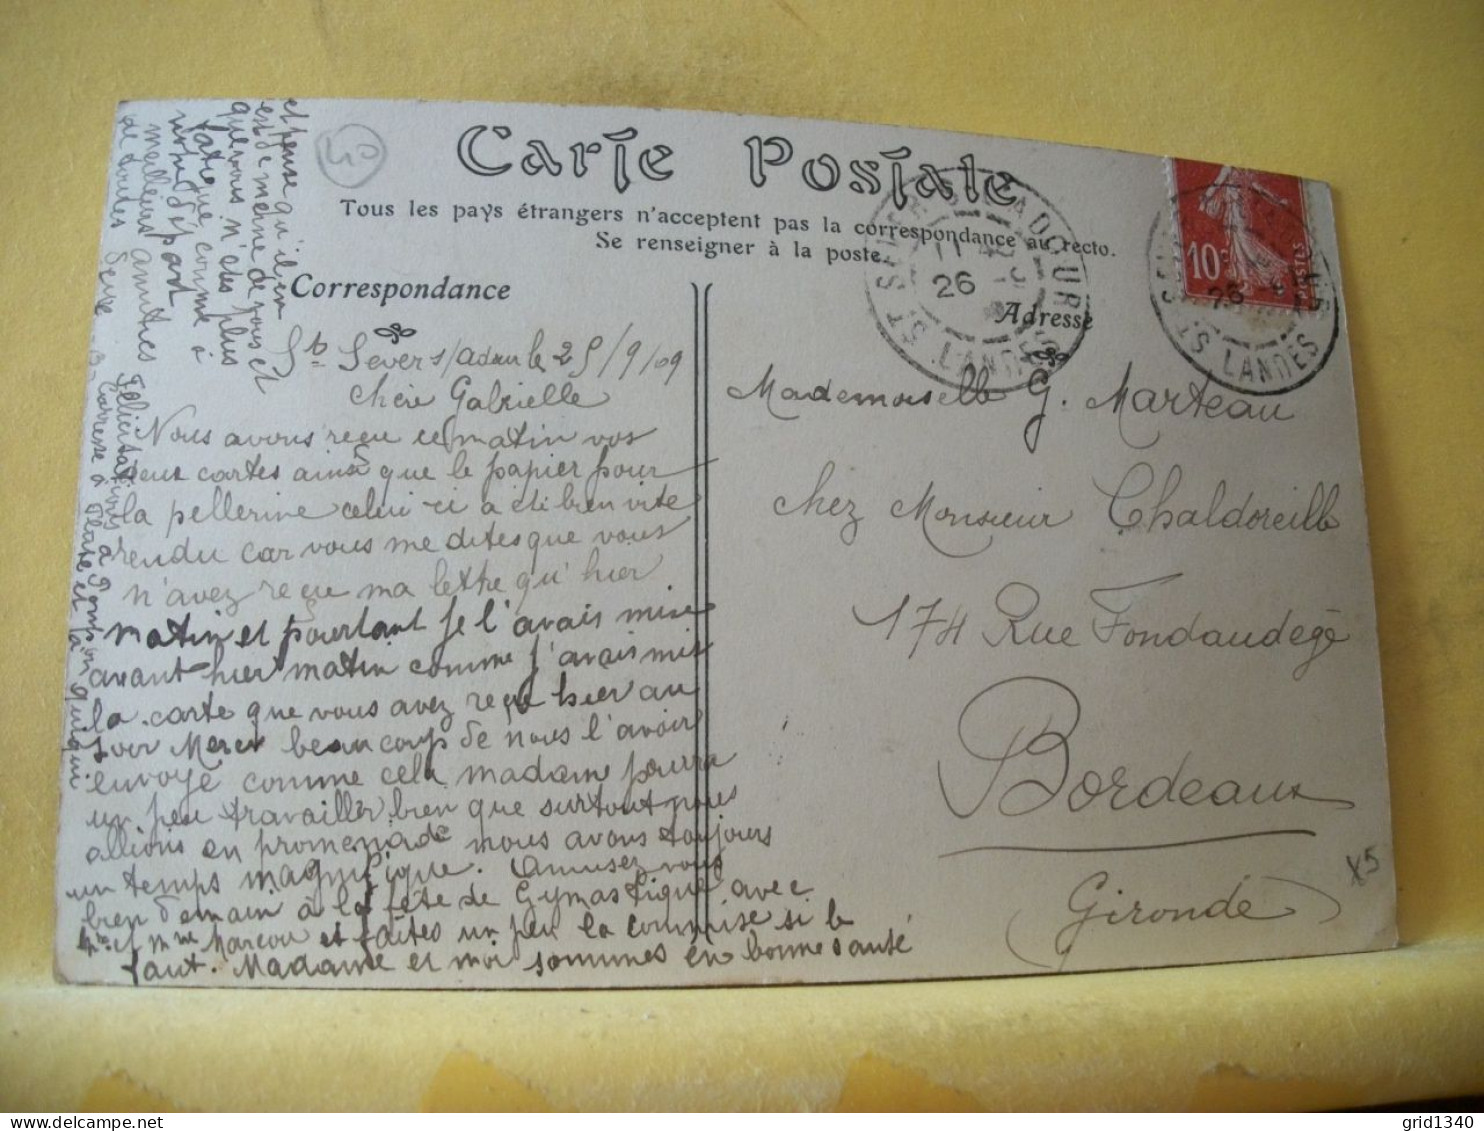 Carte Postale
Tous les pays étrangers n'acceptent pas la correspondance au recto.
Se renseigner à la poste.
Correspondance
Adresse
40
St Sever s/Adour le 25/9/09
Chère Gabrielle
Nous avons reçu ce matin vos
deux cartes ainsi que le papier pour
la pellerine celui-ci a été bien vite
rendu car vous me dites que vous
n'avez reçu ma lettre qu'hier
matin et pourtant je l'avais mise
avant hier matin comme j'avais mis
la carte que vous avez reçu hier au
soir Merci beaucoup de nous l'avoir
envoyé comme cela madame pourra
un peu travailler bien que surtout nous
allions en promenade nous avons toujours
un temps magnifique. Amusez vous
bien demain à la fête de Gymastique avec
Mr et Mme Marcou et faites un peu la commise si le
faut. Madame et moi sommes en bonne santé
et pense qu'il en
est de même de vous et
que vous n'êtes plus
fatigué comme à
votre départ
meilleurs amitiés
de toutes
Félicitations à
Caresse à
et à
Mademoiselle G. Marteau
chez Monsieur Chaldoreille
174 Rue Fondaudège
Bordeaux
(Gironde)
10c
POSTES
ST SEVER SUR ADOUR
26
LANDES
26
ST LANDES
X5
grid1340